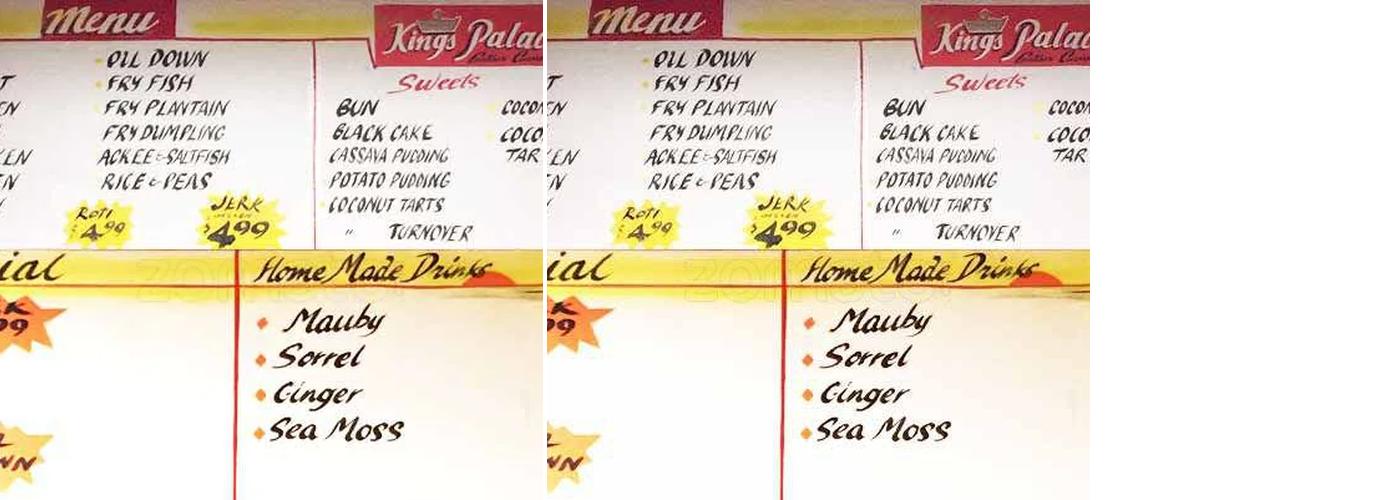 Menu
Kings Palac
OIL DOWN
FRY FISH
FRY PLANTAIN
FRY DUMPLING
ACKEE & SALTFISH
RICE & PEAS
ROTI
$4.99
JERK
CHICKEN
$4.99
Sweets
BUN
BLACK CAKE
CASSAVA PUDDING
POTATO PUDDING
COCONUT TARTS
" TURNOVER
COCON
COCO
TAR
ial
Home Made Drinks
Mauby
Sorrel
Ginger
Sea Moss
Menu
Kings Palac
OIL DOWN
FRY FISH
FRY PLANTAIN
FRY DUMPLING
ACKEE & SALTFISH
RICE & PEAS
ROTI
$4.99
JERK
CHICKEN
$4.99
Sweets
BUN
BLACK CAKE
CASSAVA PUDDING
POTATO PUDDING
COCONUT TARTS
" TURNOVER
COCON
COCO
TAR
ial
Home Made Drinks
Mauby
Sorrel
Ginger
Sea Moss